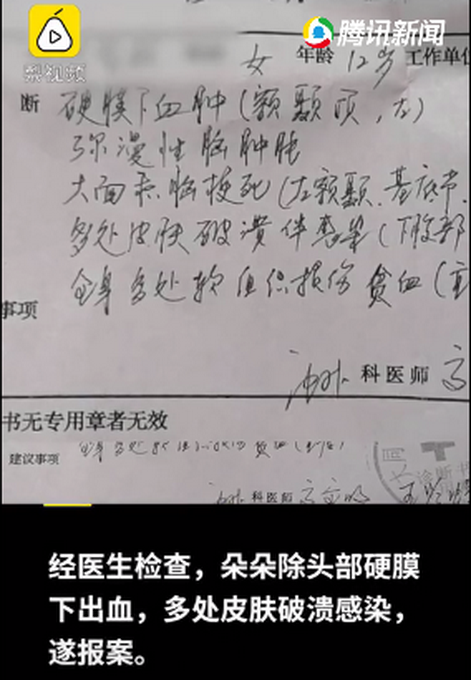 梨视频
腾讯新闻
女 年龄 12岁 工作单位
断 硬膜下血肿(额颞顶,左)
弥漫性脑肿胀
大面积脑梗死(左额颞、基底节、
多处皮肤破溃伴感染(下肢部
全身多处软组织损伤 贫血(重
事项
神外 科医师 高
书无专用章者无效
建议事项
全身多处软组织损伤 贫血(
神外 科医师
诊断书
经医生检查,朵朵除头部硬膜
下出血,多处皮肤破溃感染,
遂报案。